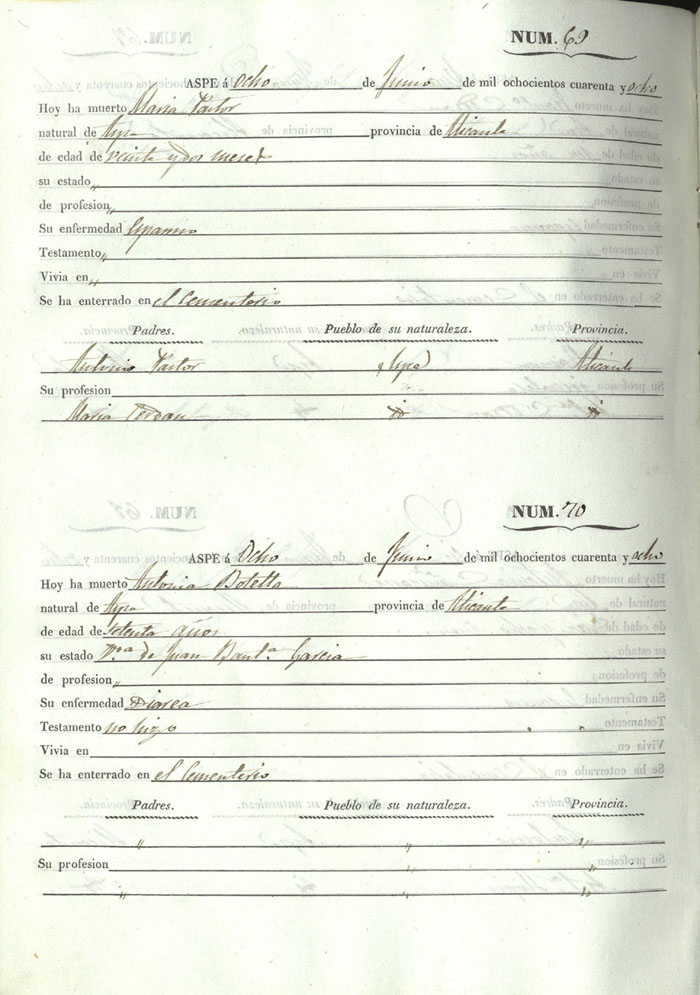 NUM. 69
ASPE á ocho de Junio de mil ochocientos cuarenta y ocho
Hoy ha muerto Maria Pastor
natural de Aspe provincia de Alicante
de edad de veinte y dos meses
su estado „
de profesion „
Su enfermedad Espasmo
Testamento „
Vivia en „
Se ha enterrado en el Cementerio
Padres. Pueblo de su naturaleza. Provincia.
Antonio Pastor Aspe Alicante
Su profesion
Maria
NUM. 70
ASPE á Ocho de Junio de mil ochocientos cuarenta y ocho
Hoy ha muerto Antonia Botella
natural de Aspe provincia de Alicante
de edad de setenta años
su estado V.ª de Juan Baut.ª Garcia
de profesion „
Su enfermedad Diarea
Testamento no hizo
Vivia en
Se ha enterrado en el Cementerio
Padres. Pueblo de su naturaleza. Provincia.
„ „ „
Su profesion „ „
„ „ „